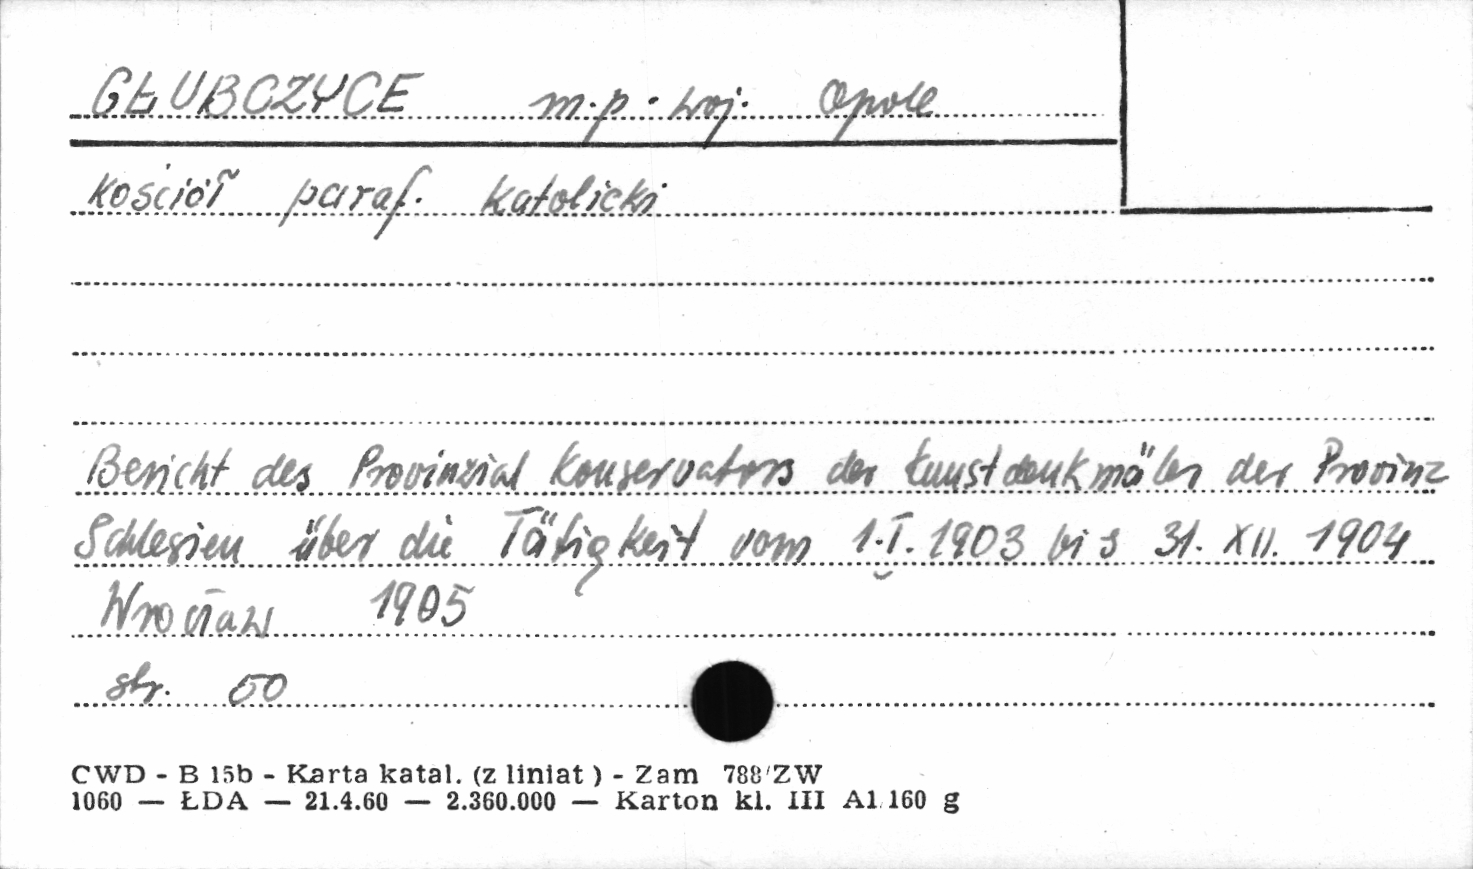 GŁUBCZYCE m.p. woj. Opole
kościół paraf. katolicki
Bericht des Provinzial Konservators der Kunstdenkmäler der Provinz
Schlesien über die Tätigkeit vom 1.I.1903 bis 31. XII. 1904
Wrocław 1905
str. 50
CWD - B 15b - Karta katal. (z liniat ) - Zam 788/ZW
1060 — ŁDA — 21.4.60 — 2.360.000 — Karton kl. III A1 160 g